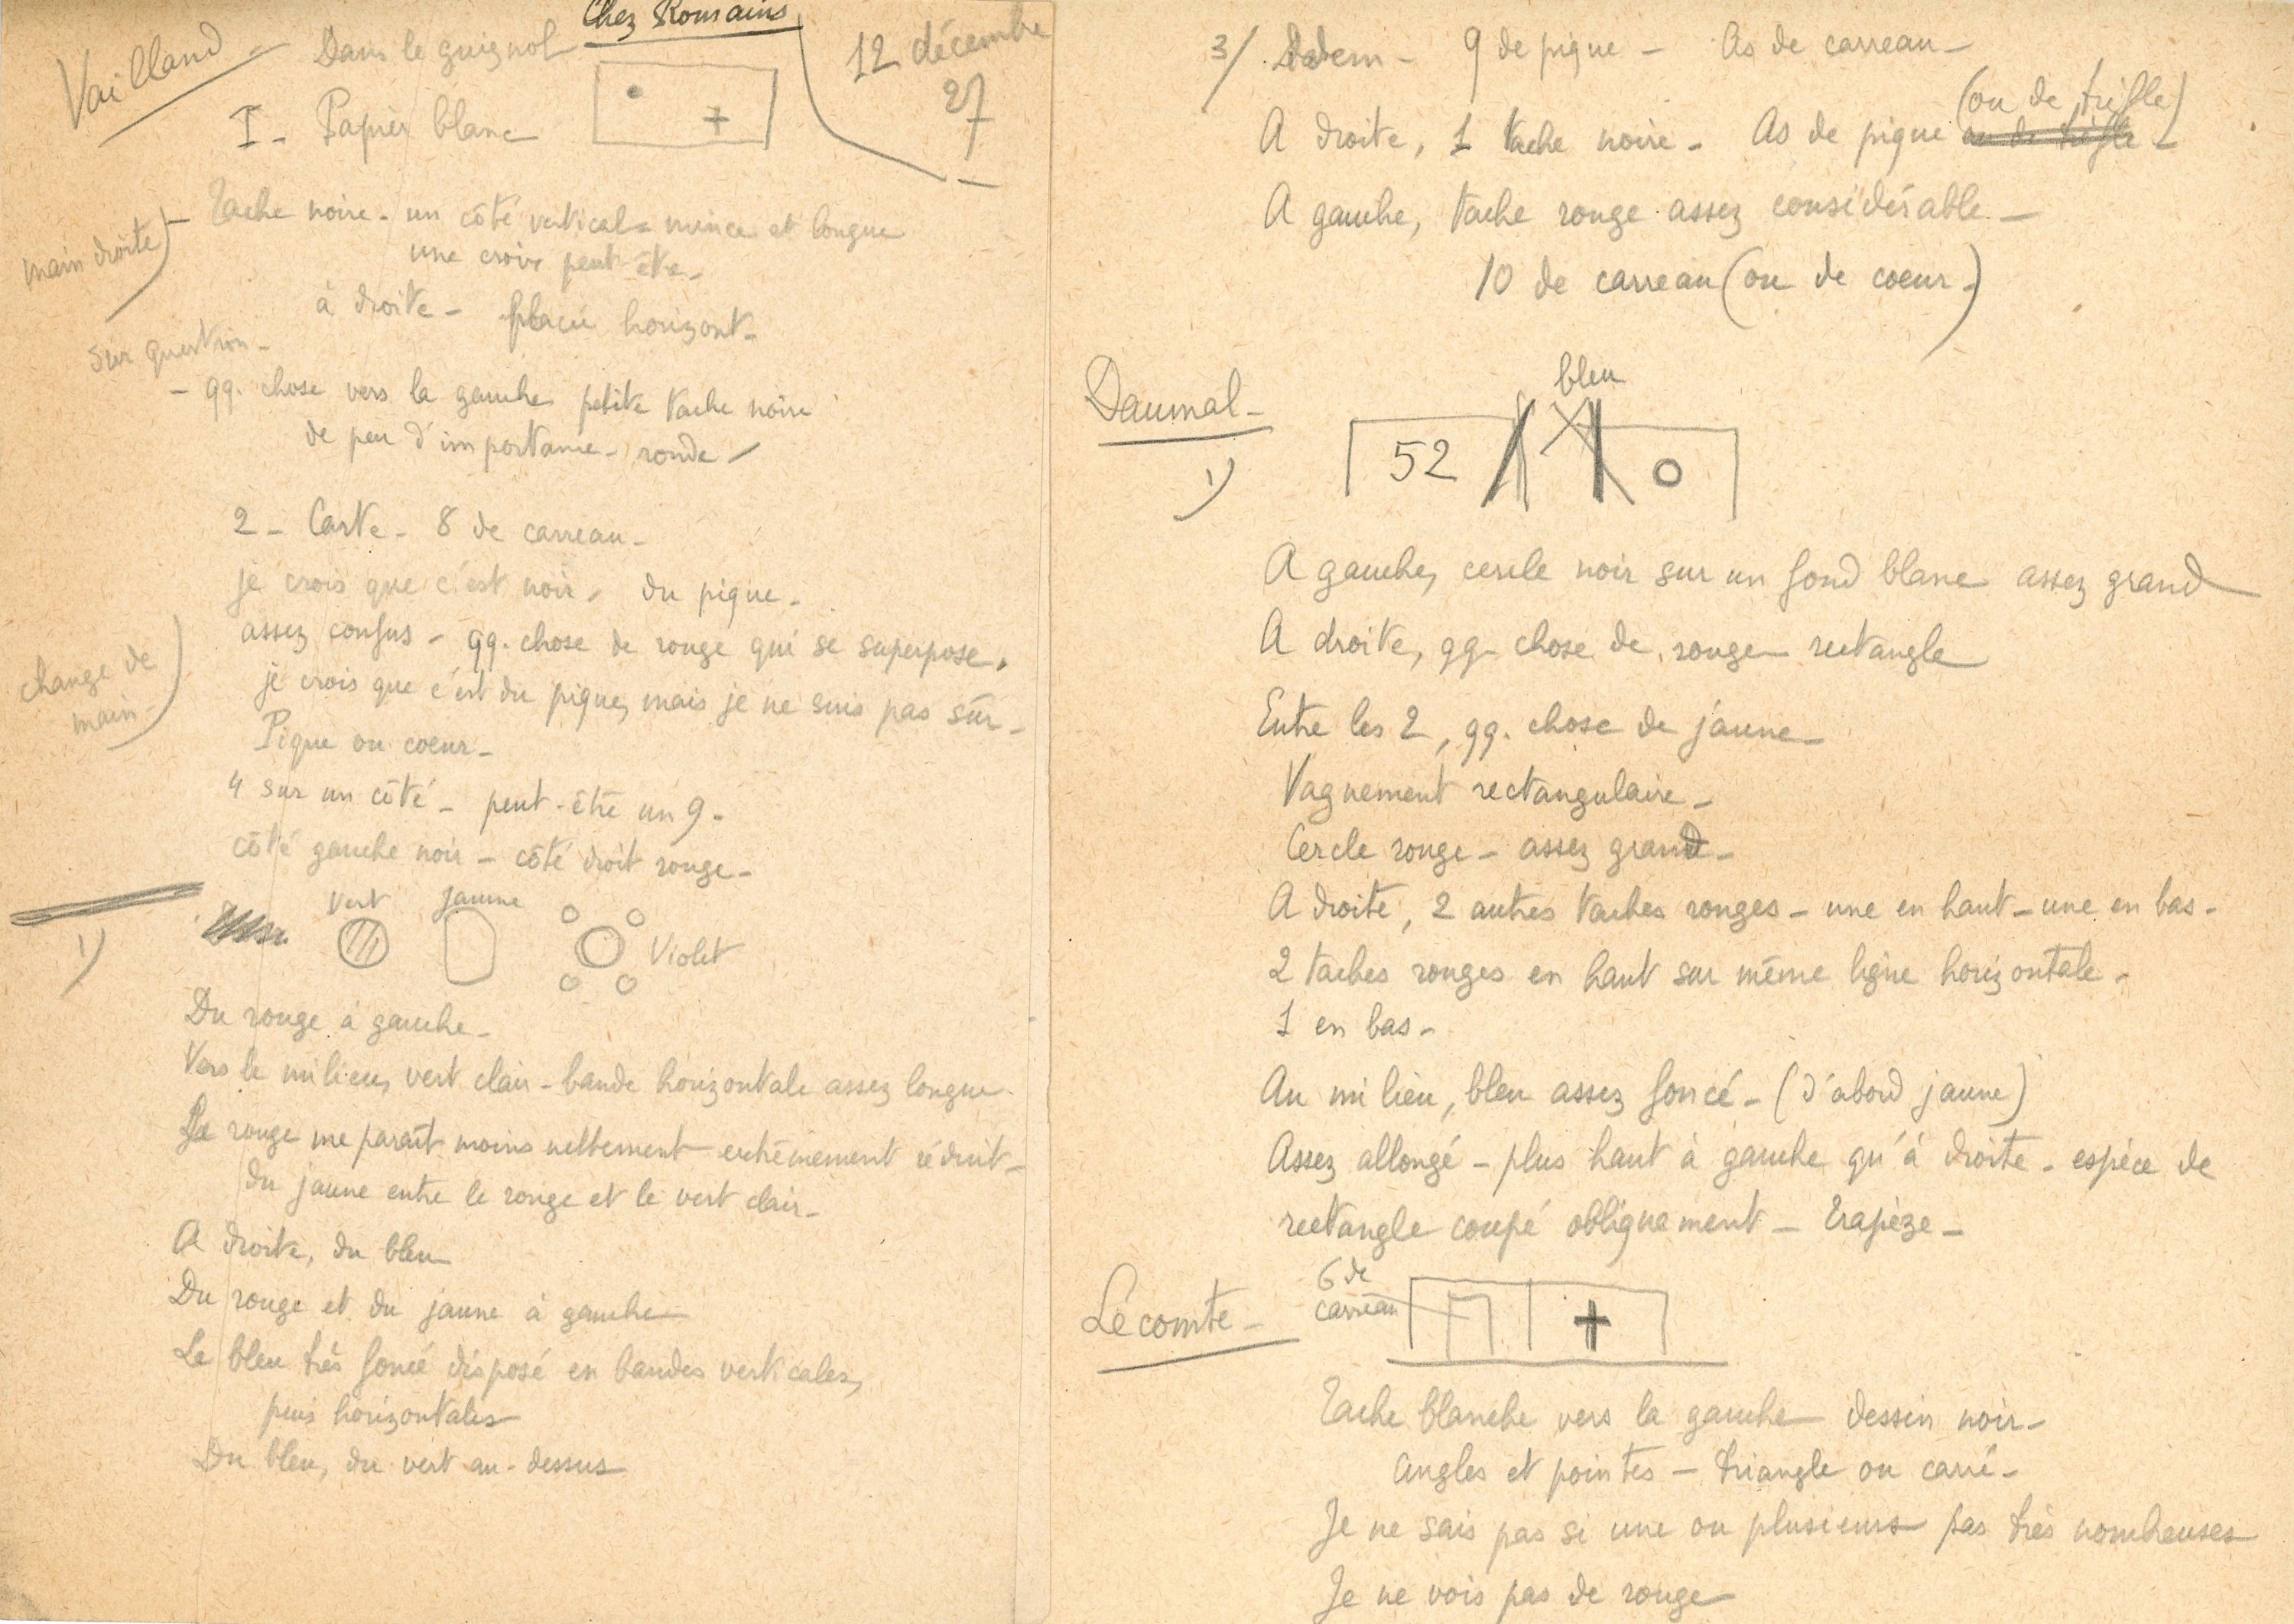 Chez Romains
Vailland - Dans le guignol
12 décembre
27
I - Papier blanc
main droite) - Tache noire - un côté vertical - mince et longue
une croix peut être -
à droite - placée horizont -
Sur question -
- qq. chose vers la gauche petite tache noire
de peu d'importance - ronde -
2 - Carte - 8 de carreau -
je crois que c'est noir - du pique -
assez confus - qq. chose de rouge qui se superpose -
change de
main -)
je crois que c'est du pique, mais je ne suis pas sûr -
Pique ou coeur -
4 sur un côté - peut-être un 9 -
côté gauche noir - côté droit rouge -
1) vert jaune
Violet
Du rouge à gauche -
Vers le milieu, vert clair - bande horizontale assez longue -
Le rouge me paraît moins nettement extrêmement réduit -
du jaune entre le rouge et le vert clair -
A droite, du bleu
Du rouge et du jaune à gauche
Le bleu très foncé disposé en bandes verticales,
puis horizontales
Du bleu, du vert au-dessus
3/ Idem - 9 de pique - As de carreau -
(ou de trèfle)
A droite, 1 tache noire - As de pique ou de trèfle -
A gauche, tache rouge assez considérable -
10 de carreau (ou de coeur -)
Daumal -
bleu
1) 52 O
A gauche, cercle noir sur un fond blanc assez grand
A droite, qq. chose de rouge rectangle
Entre les 2, qq. chose de jaune -
Vaguement rectangulaire -
Cercle rouge - assez grand -
A droite, 2 autres taches rouges - une en haut - une en bas -
2 taches rouges en haut sur même ligne horizontale -
1 en bas -
Au milieu, bleu assez foncé - (d'abord jaune)
Assez allongé - plus haut à gauche qu'à droite - espèce de
rectangle coupé obliquement - Trapèze -
Lecomte -
6 de
carreau
+
Tache blanche vers la gauche dessin noir -
Angles et pointes - triangle ou carré -
Je ne sais pas si une ou plusieurs pas très nombreuses
Je ne vois pas de rouge